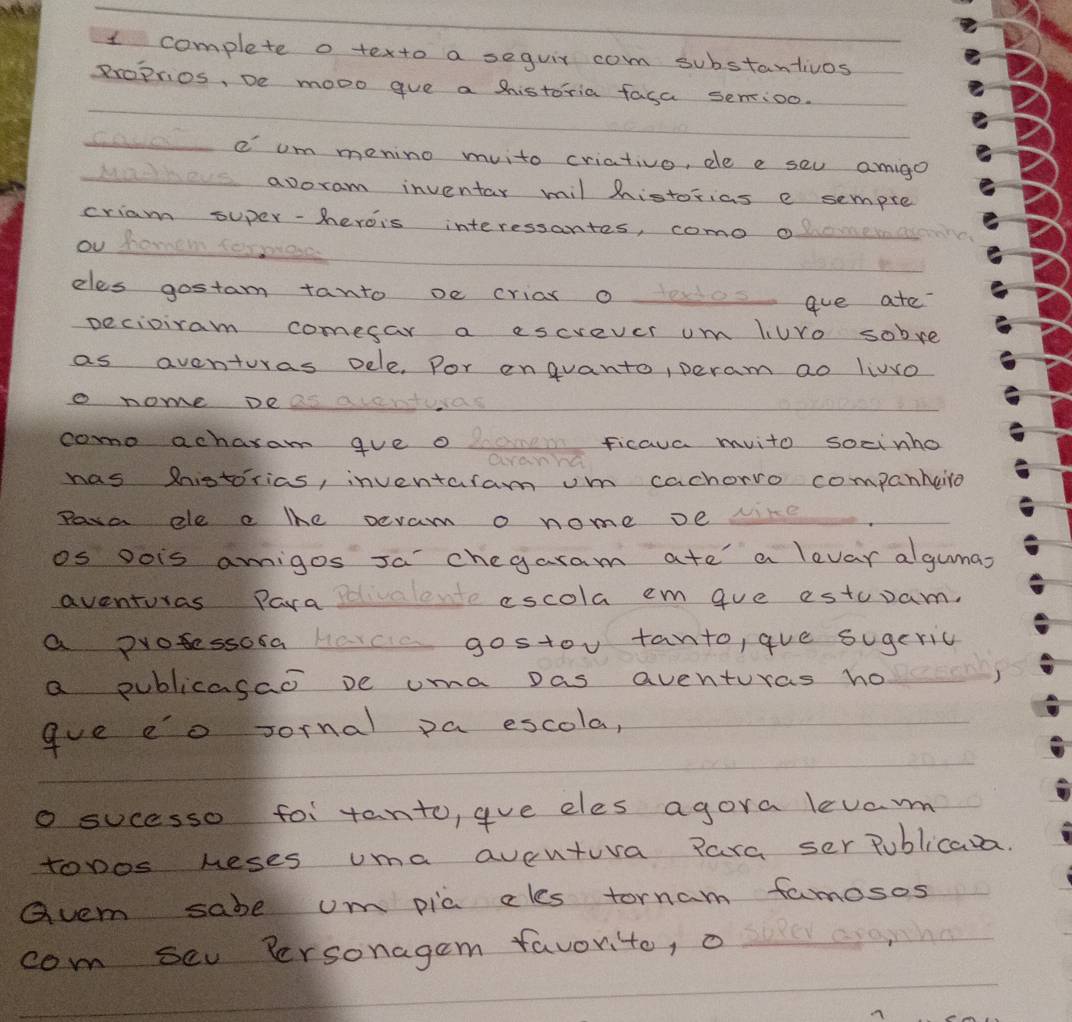 1 complete o texto a seguir com substantivos
Próprios, De moDo que a história faça sentiDo.
é um menino muito criativo, ele e seu amigo
Matheus aDoram inventar mil histórias e sempre
criam super-heróis interessantes, como o homem aranha
ou homem formiga
eles gostam tanto De criar o textos que até
DeciDiram começar a escrever um livro sobre
as aventuras Dele. Por enquanto, Deram ao livro
o nome De as aventuras
como acharam que o homem aranha ficava muito sozinho
nas histórias, inventaram um cachorro companheiro
Para ele e lhe Deram o nome De
os Dois amigos Já chegaram até a levar algumas
aventuras Para Polivalente escola em que estuDam.
a professora Marcia gostou tanto, que sugeriu
a publicação De uma Das aventuras no
que é o Jornal Da escola,
o sucesso foi tanto, que eles agora levam
toDos Meses uma aventura Para ser PublicaDa.
Quem sabe um Dia eles tornam famosos
com seu Personagem favorito, o super aranha